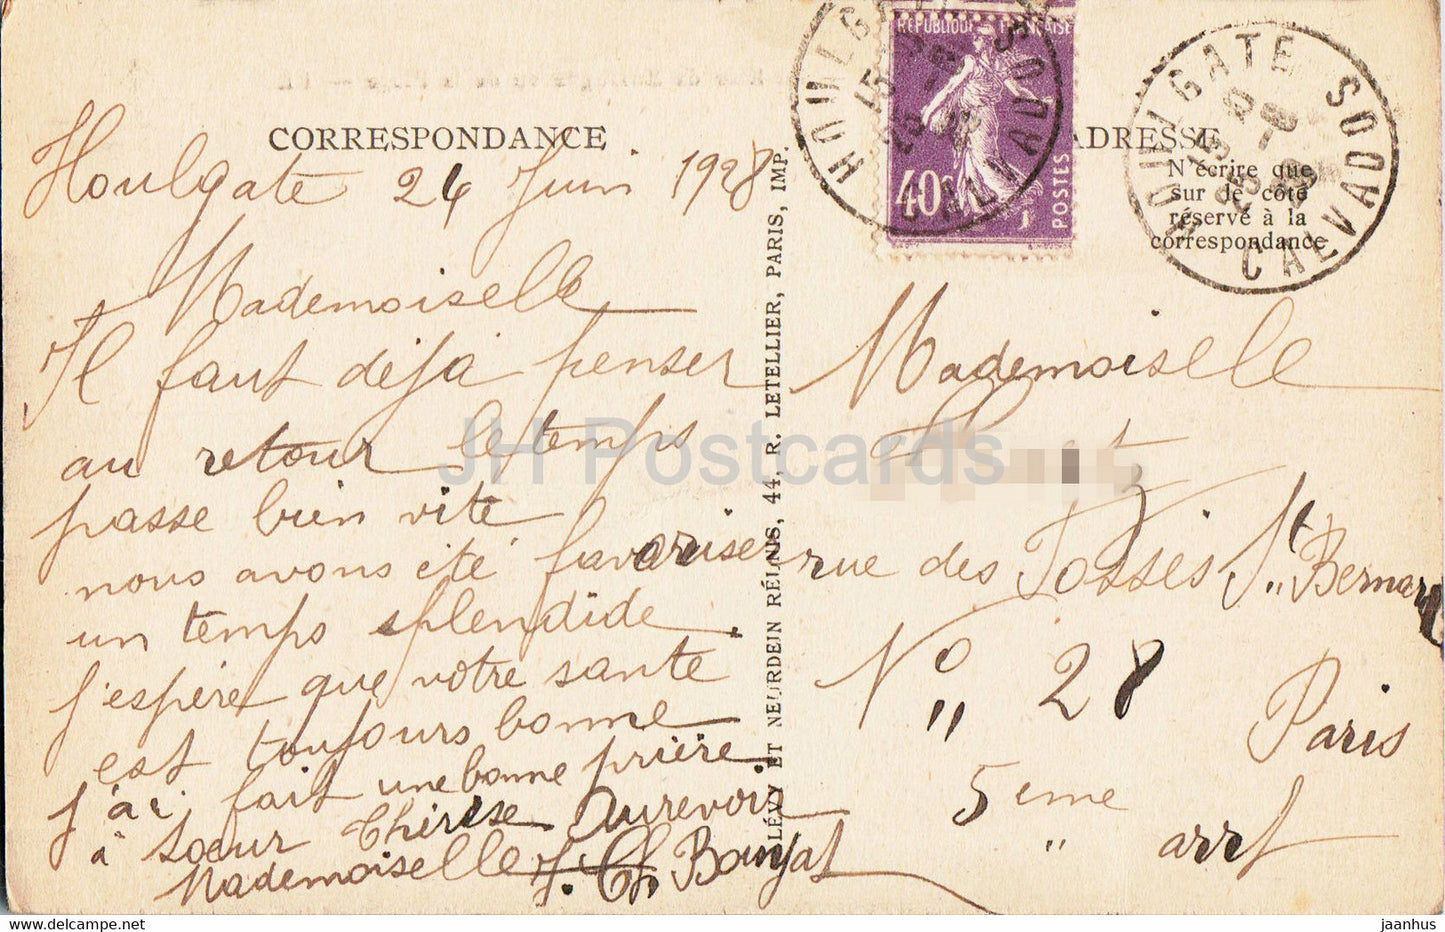 CORRESPONDANCE
Houlgate 24 Juin 1928
Mademoiselle
Il faut déjà penser
au retour le temps
passe bien vite
nous avons été favorise
un temps splendide
j'espère que votre santé
est toujours bonne
j'ai fait une bonne prière
à Soeur Thérèse Aurevoir
Mademoiselle J. Ch Bonyat
LÉVY ET NEURDEIN RÉUNIS, 44, R. LETELLIER, PARIS, IMP.
RÉPUBLIQUE FRANÇAISE
40c
POSTES
HOULGATE
CALVADOS
ADRESSE
N'écrire que
sur le côté
réservé à la
correspondance
HOULGATE
CALVADOS
Mademoiselle
rue des Fossés St Bernard
No 28
Paris
5eme arrt
JH Postcards
jaanhus